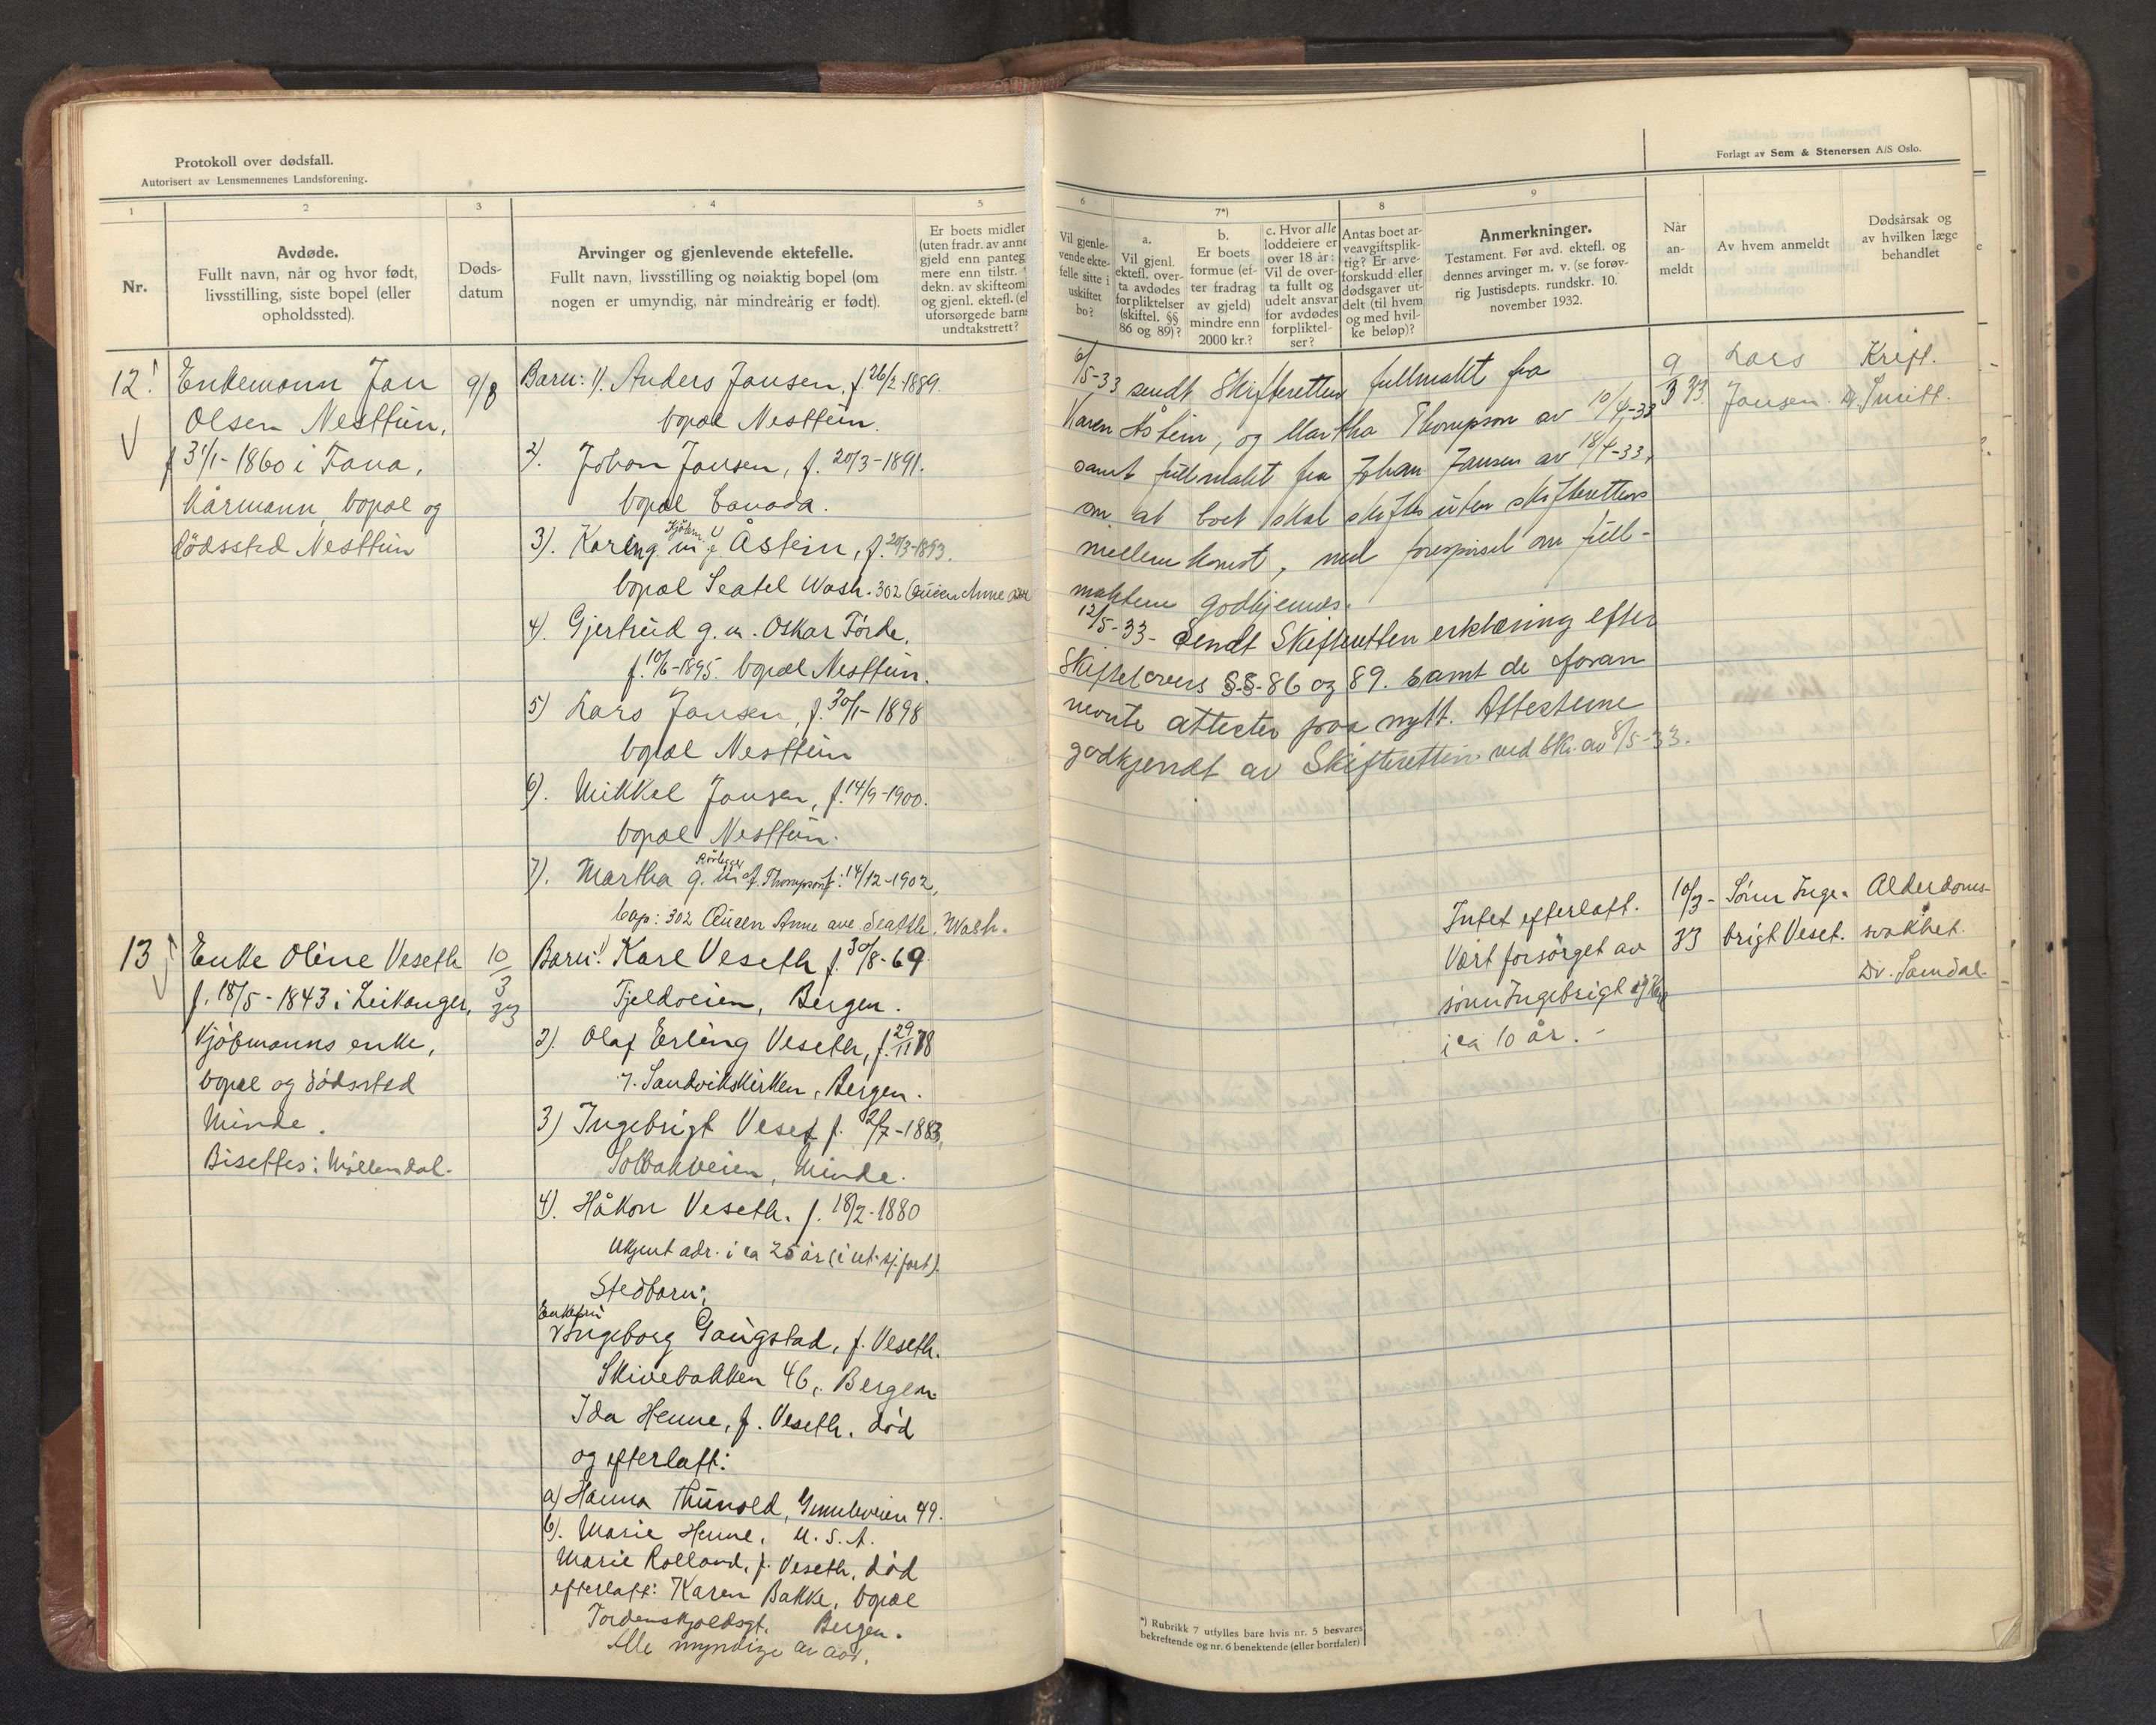 Protokoll over dødsfall.
Autorisert av Lensmennenes Landsforening.
1
2
3
4
5
Nr.
Avdøde.
Fullt navn, når og hvor født,
livsstilling, siste bopel (eller
opholdssted).
Døds-
datum
Arvinger og gjenlevende ektefelle.
Fullt navn, livsstilling og nøiaktig bopel (om
nogen er umyndig, når mindreårig er født).
Er boets midler
(uten fradr. av anne
gjeld enn panteg
mere enn tilstr.
dekn. av skifteom
og gjenl. ektef. (el
uforsørgede barns
undtakstrett?
12.
Enkemann Jan
Olsen Nesttun,
f 31/1-1860 i Fana,
Kårmann, bopæl og
dödssted Nesttun
9/8
Barn: 1). Anders Jansen, f. 26/2-1889.
bopæl Nesttun.
2). Johan Jansen, f. 20/3-1891.
bopæl Canada.
3). Karen g. m. Åstein, f. 20/3-1893.
bopæl Seatel Wash. 302 Queen Anne ave
4). Gjertrud g. m. Oskar Förde,
f. 10/6-1895. bopæl Nesttun.
5) Lars Jansen, f. 30/1-1898
bopæl Nesttun
6). Mikkel Jansen, f. 14/9-1900.
bopæl Nesttun.
7). Martha g. m. Rörlegger Thompson f. 14/12-1902,
bop: 302 Queen Anne ave Seattle, Wash.
13
Enke Oline Veseth
f. 18/5-1843 i Leikanger,
Kjöbmanns enke,
bopæl og dödssted
Minde.
Bisettes i Möllendal.
10
3
33
Barn: 1) Karl Veseth f. 30/8-69
Fjeldveien, Bergen.
2). Olaf Erling Veseth, f. 29/11 78
v. Sandvikskirken, Bergen.
3) Ingebrigt Veset f. 2/7-1883,
Solbakveien, Minde.
4). Håkon Veseth. f. 18/2-1880
Ukjent adr. i ca 25 år (i ut. sj.fart).
Stedbarn:
Enkefru
Ingeborg Gaugstad, f. Veseth.
Skivebakken 46, Bergen
Ida Henne, f. Veseth. död
og efterlatt:
a) Hanna Thunold, Gimleveien 49.
b). Marie Henne, U. S. A.
Marie Rolland, f. Veseth, död
efterlatt: Karen Bakke, bopæl
Tordenskjoldsgt. Bergen.
Alle myndige av avd.
Forlagt av Sem & Stenersen A/S Oslo.
6
7*)
8
9
Vil gjenle-
vende ekte-
felle sitte i
uskiftet
bo?
a.
Vil gjenl.
ektefl. over-
ta avdødes
forpliktelser
(skiftel. §§
86 og 89)?
b.
Er boets
formue (ef-
ter fradrag
av gjeld)
mindre enn
2000 kr.?
c. Hvor alle
loddeiere er
over 18 år:
Vil de over-
ta fullt og
udelt ansvar
for avdødes
forpliktel-
ser?
Antas boet ar-
veavgiftsplik-
tig? Er arve-
forskudd eller
dødsgaver ut-
delt (til hvem
og med hvil-
ke beløp)?
Anmerkninger.
Testament. Før avd. ektefl. og
dennes arvinger m. v. (se forøv-
rig Justisdepts. rundskr. 10.
november 1932.
Når
an-
meldt
Av hvem anmeldt
Dødsårsak og
av hvilken læge
behandlet
6/5-33 sendt Skifteretten fullmakt fra
Karen Åstein, og Martha Thompson av 10/4-33
samt fullmakt fra Johan Jansen av 18/4-33,
om at boet skal skiftes uten skifterettens
mellemkomst, med forespörsel om full-
maktene godkjennes.
12/5-33- Sendt Skifteretten erklæring efter
Skiftelovens §§-86 og 89. samt de foran
nevnte attester paa nytt. Attesterne
godkjendt av Skifteretten ved skr. av 8/5-33.
9
3 33.
Lars
Jansen.
Kreft.
Dr. Smitt.
Intet efterlatt.
Vært forsörget av
sönn Ingebrigt
i ca 10 år.
10/3-
33
Sönn Inge-
brigt Veset.
Alderdoms-
svakhet.
Dr. Samdal.
*) Rubrikk 7 utfylles bare hvis nr. 5 besvares
bekreftende og nr. 6 benektende (eller bortfaler)